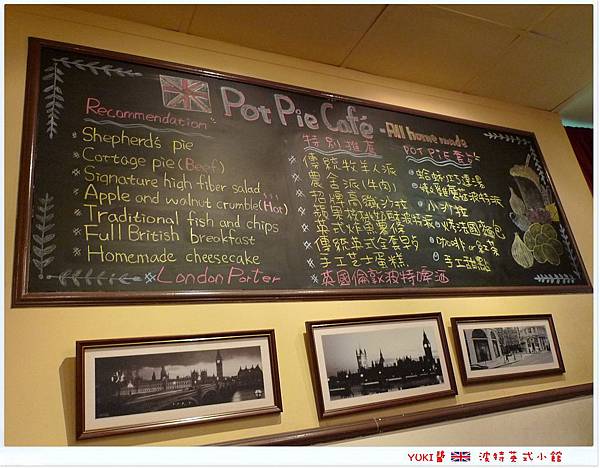 Pot Pie Café - All home made
Recommendation
Shepherd's pie
Cottage pie (Beef)
Signature high fiber salad
Apple and walnut crumble (Hot)
Traditional fish and chips
Full British breakfast
Homemade cheesecake
London Porter
特別推薦
傳統牧羊人派
農舍派(牛肉)
招牌高纖沙拉
英式炸魚薯條
傳統英式全餐
手工芝士蛋糕
英國倫敦波特啤酒
POT PIE套餐
蛤蜊巧達湯
小沙拉
烤法國麵包
咖啡 or 紅茶
手工甜點
YUKI醬 波特英式小館